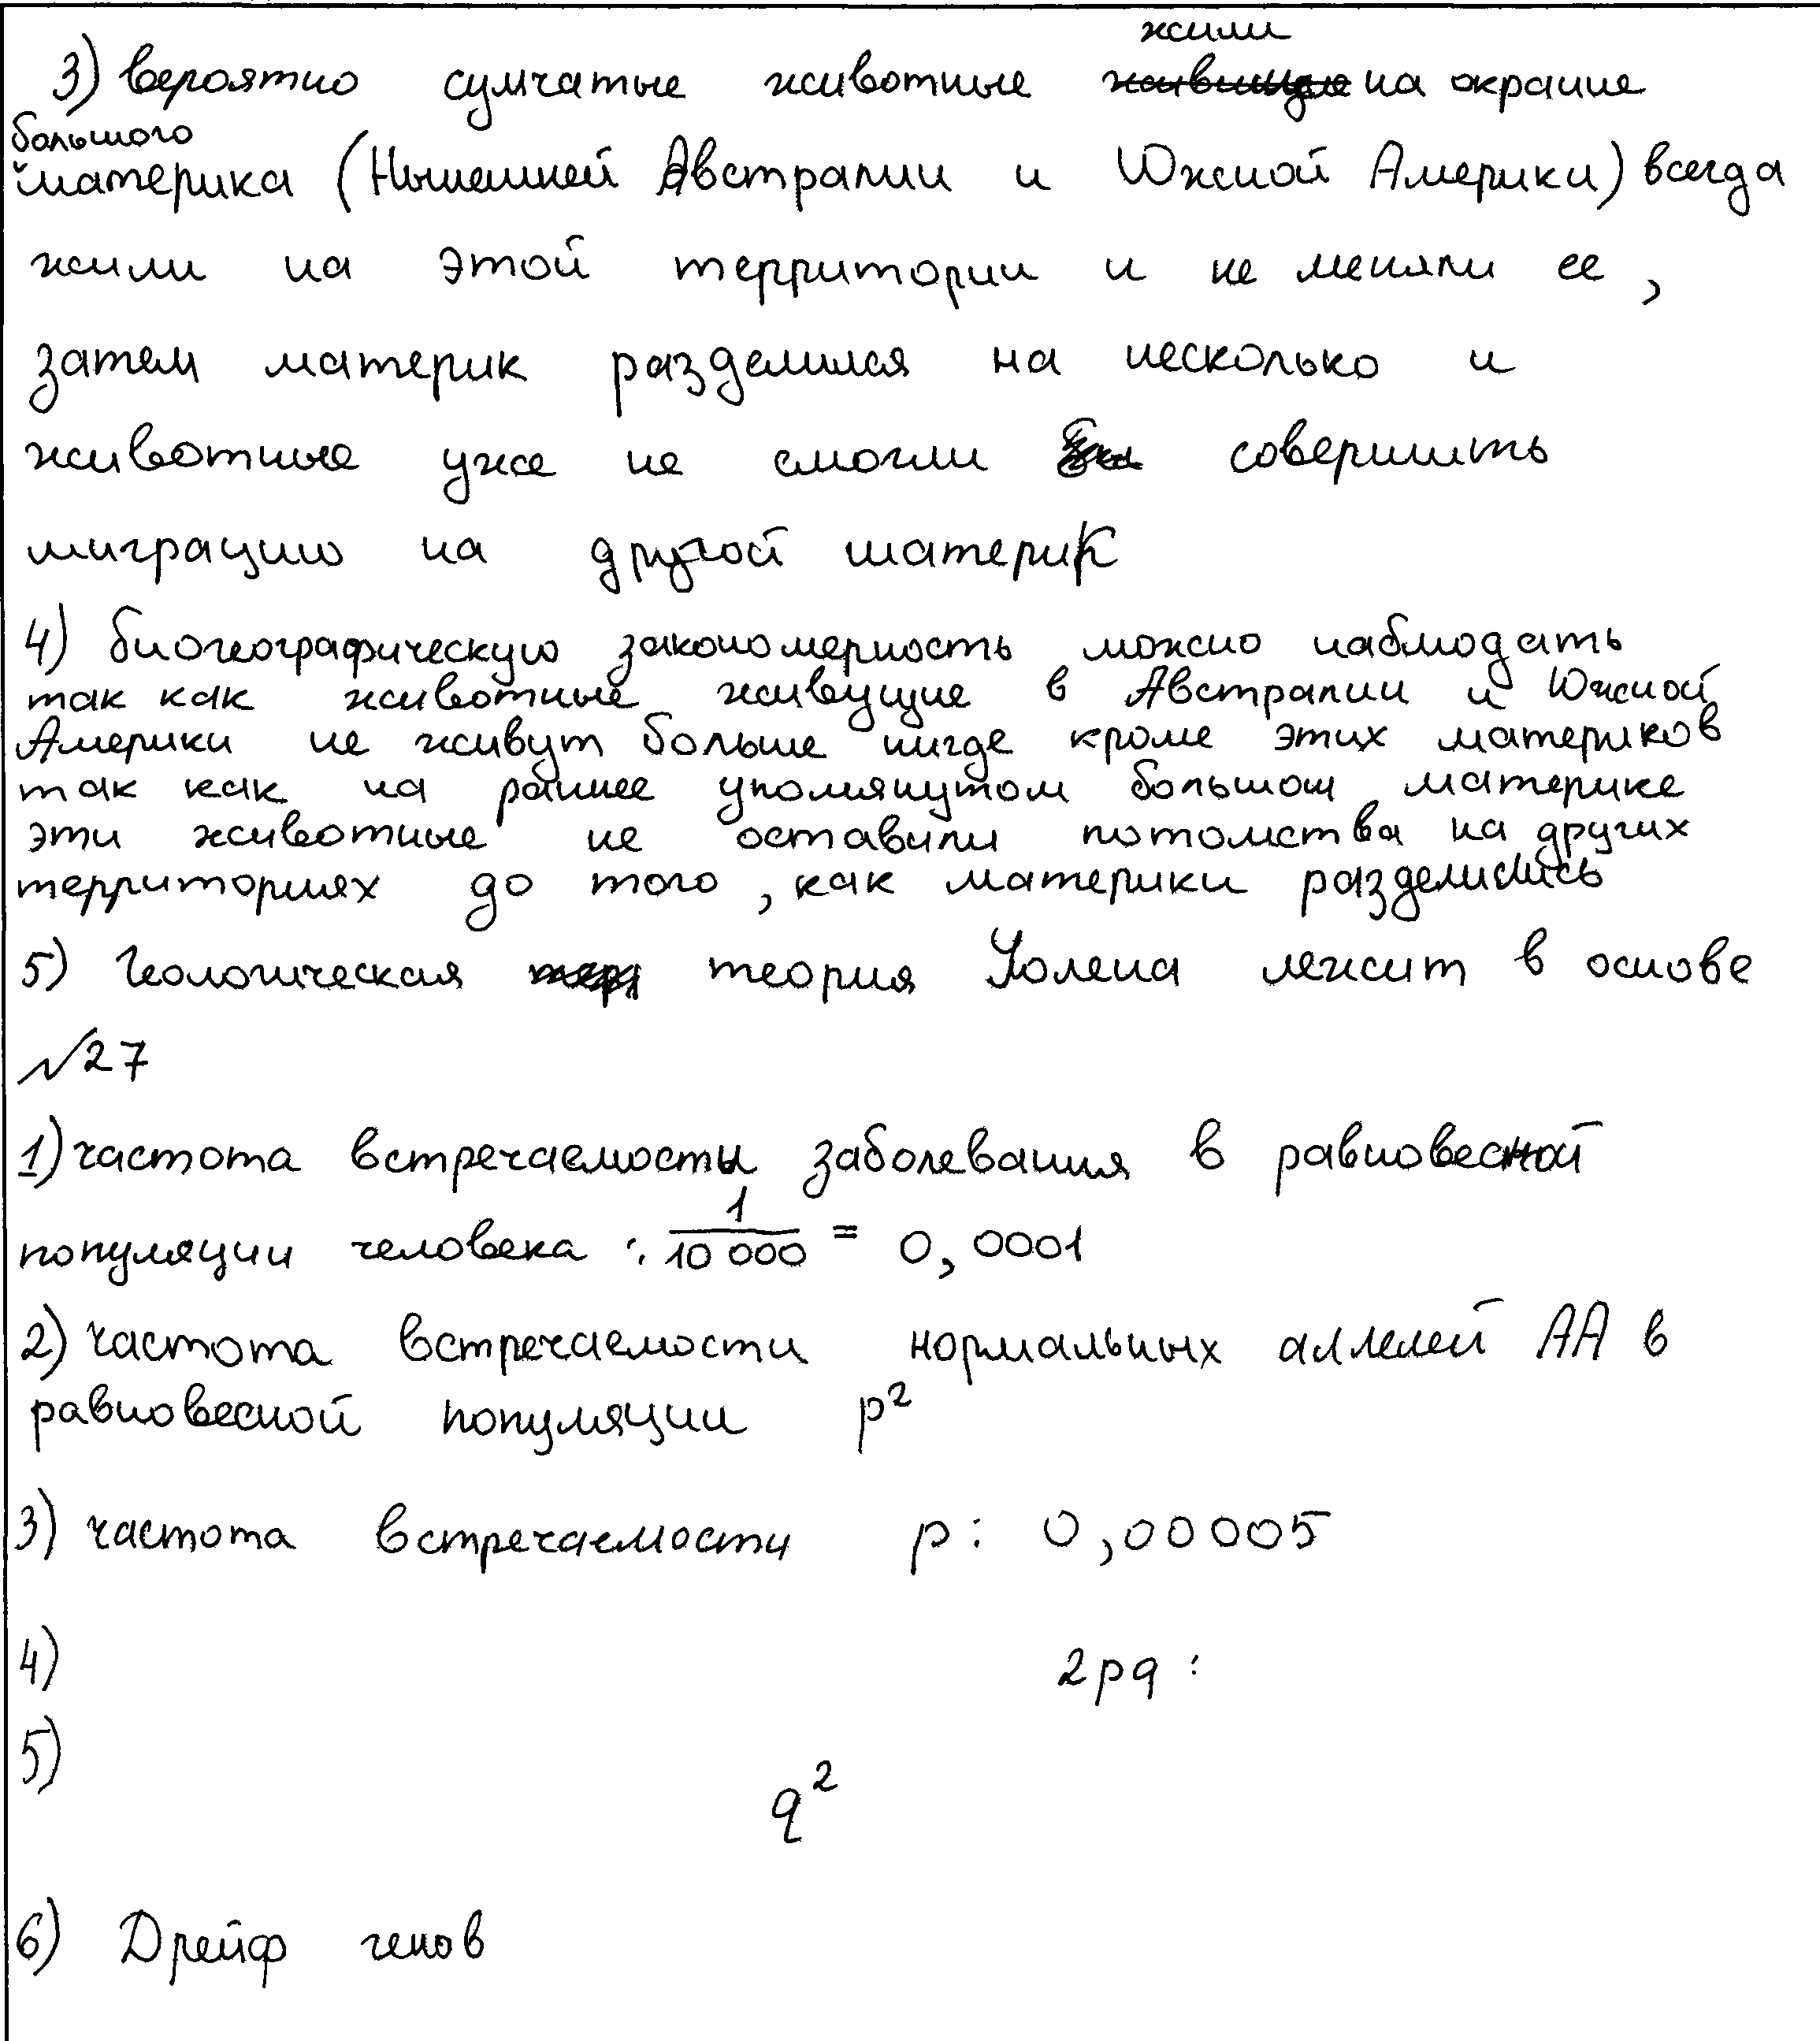 жили
3) вероятно сумчатые животные на окраине
большого
материка (Нынешней Австралии и Южной Америки) всегда
жили на этой территории и не меняли ее,
затем материк разделился на несколько и
животные уже не смогли совершить
миграцию на другой материк
4) биогеографическую закономерность можно наблюдать
так как животные живущие в Австралии и Южной
Америки не живут больше нигде кроме этих материков
так как на раннее упомянутом большом материке
эти животные не оставили потомства на других
территориях до того, как материки разделились
5) Геологическая теория Уолеса лежит в основе
№27
1) частота встречаемость заболевания в равновесной
популяции человека : 1/10 000 = 0,0001
2) частота встречаемости нормальных аллелей АА в
равновесной популяции p²
3) частота встречаемости p: 0,00005
4) 2pq :
5)
q²
6) Дрейф генов